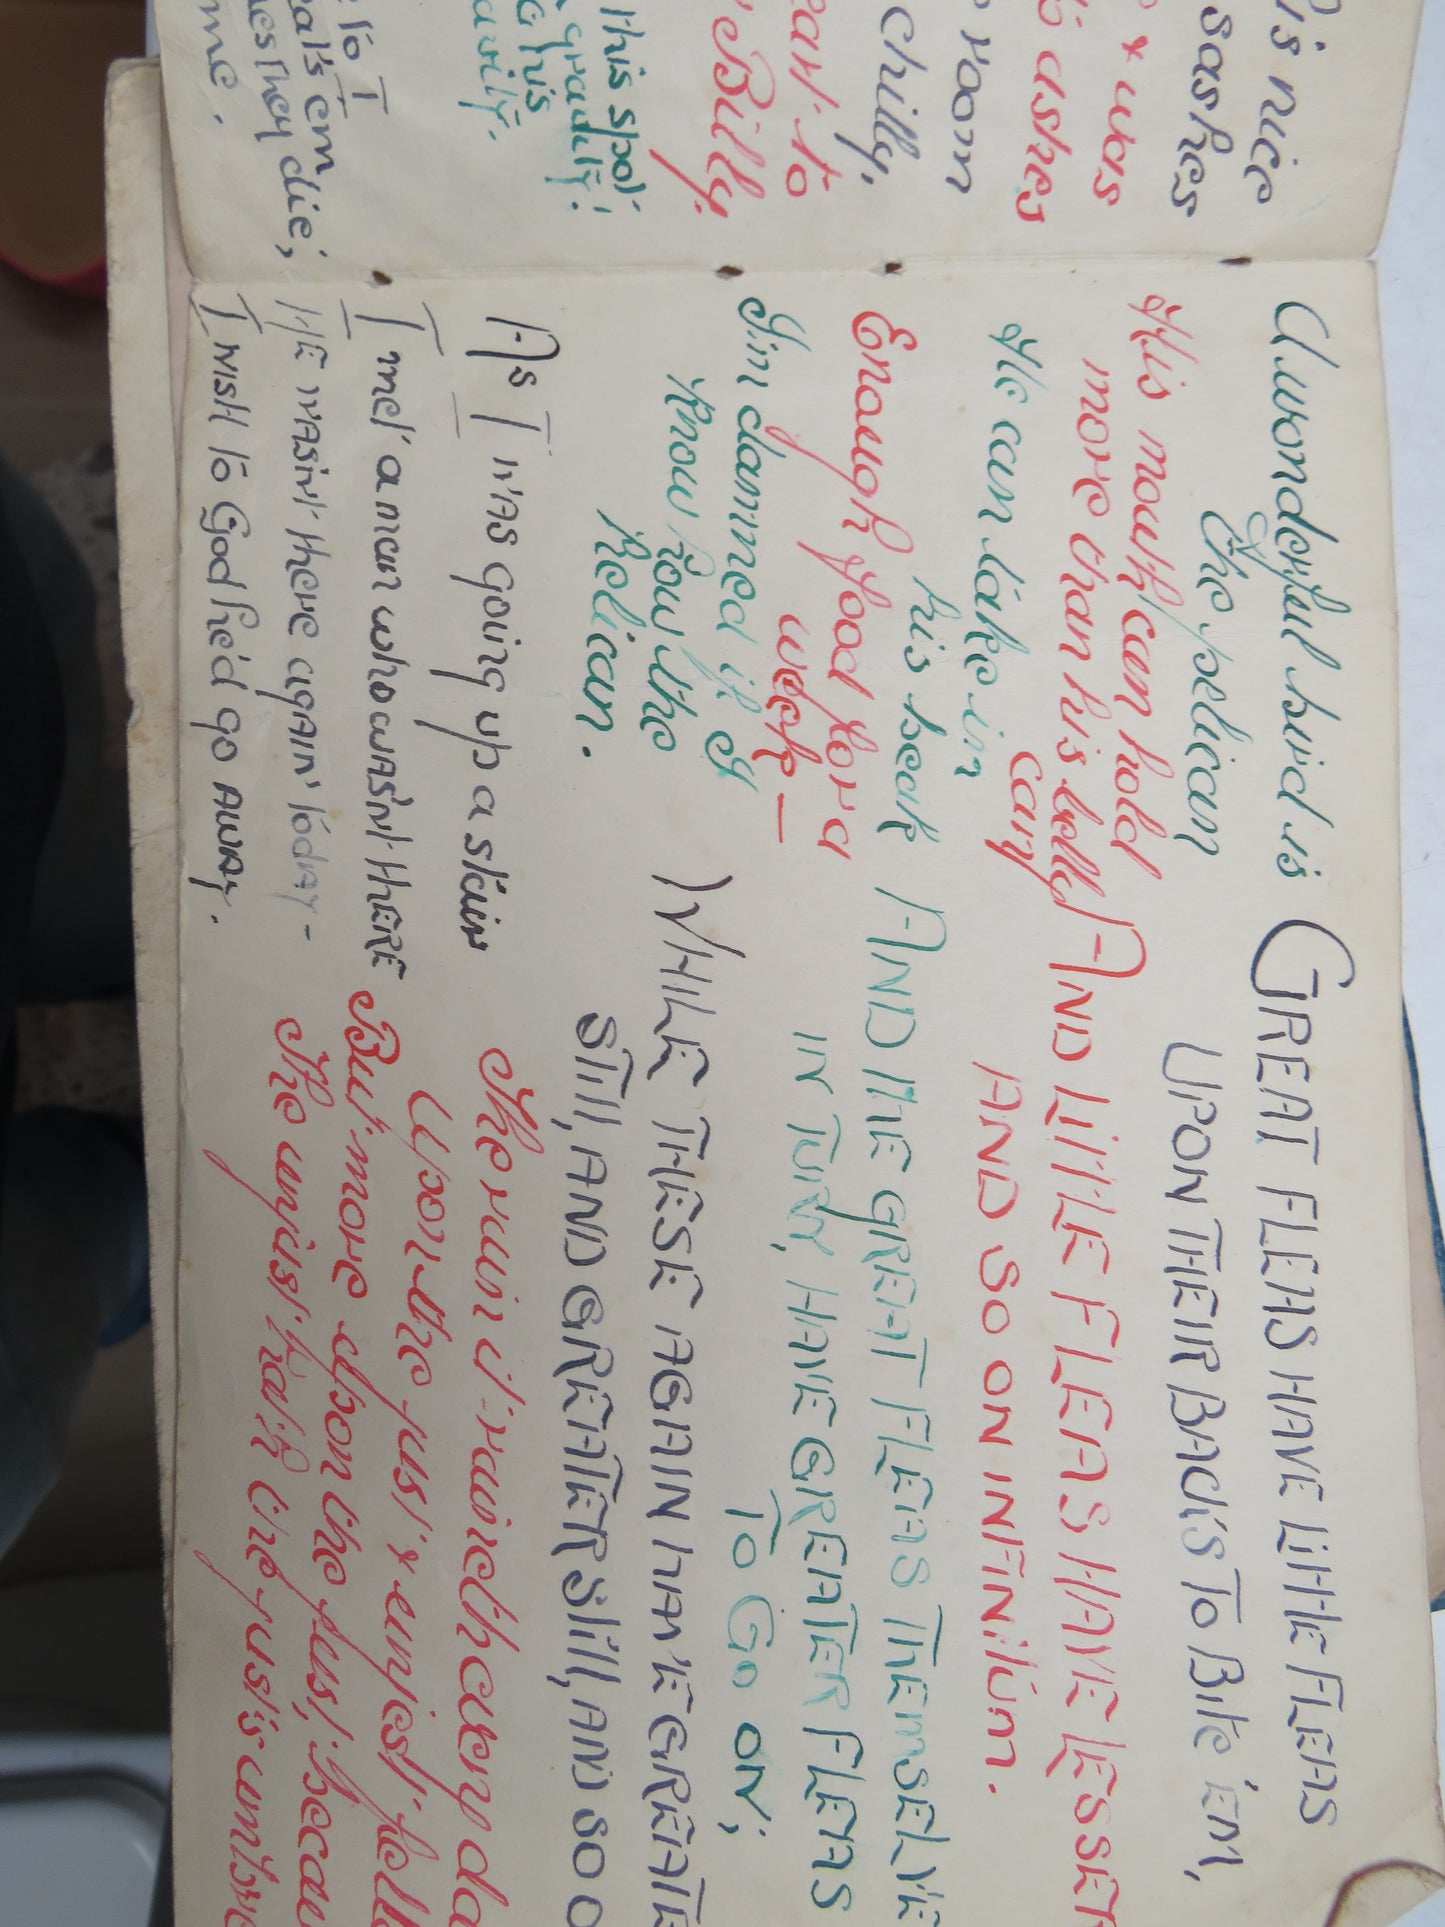 is nice
sashes
& was
to ashes
room
chilly,
to
Billy.
this spot
gravity:
his
gravity.
to I
eat's em
they die;
me.
A wonderful bird is
the pelican
His mouth can hold
more than his belly
can,
He can take in
his beak
Enough food for a
week -
I'm damned if I
know how the
pelican.
As I was going up a stair
I met a man who wasn't there
HE wasn't there again today -
I wish to God he'd go away.
GREAT FLEAS HAVE LITTLE FLEAS
UPON THEIR BACKS TO BITE 'EM,
AND LITTLE FLEAS HAVE LESSER
AND SO ON INFINITUM.
AND THE GREAT FLEAS THEMSELVE
IN TURN, HAVE GREATER FLEAS
TO GO ON;
WHILE THESE AGAIN HAVE GREATE
STILL, AND GREATER STILL, AND SO O
The rain it raineth every da
Upon the just & unjust fell
But more upon the just, becau
The unjust hath the just's